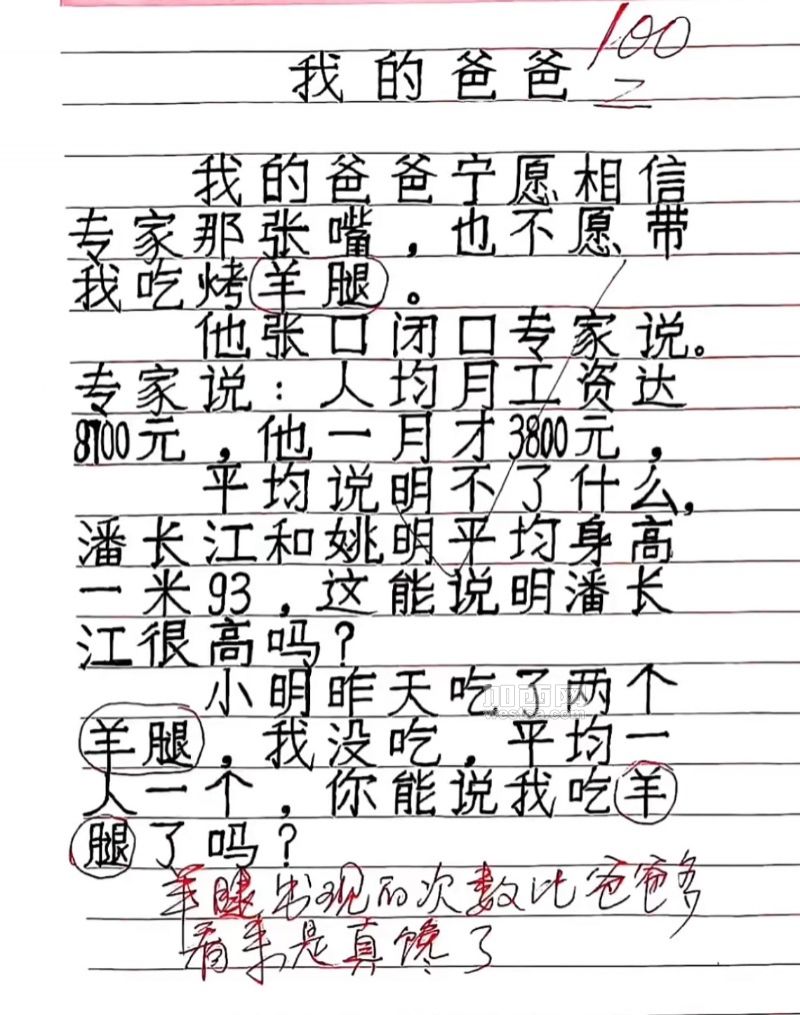 100
我的爸爸
我的爸爸宁愿相信
专家那张嘴，也不愿带
我吃烤羊腿。
他张口闭口专家说。
专家说：人均月工资达
8700元，他一月才3800元，
平均说明不了什么，
潘长江和姚明平均身高
一米93，这能说明潘长
江很高吗？
小明昨天吃了两个
羊腿，我没吃，平均一
人一个，你能说我吃羊
腿了吗？
羊腿出现的次数比爸爸多
看来是真馋了